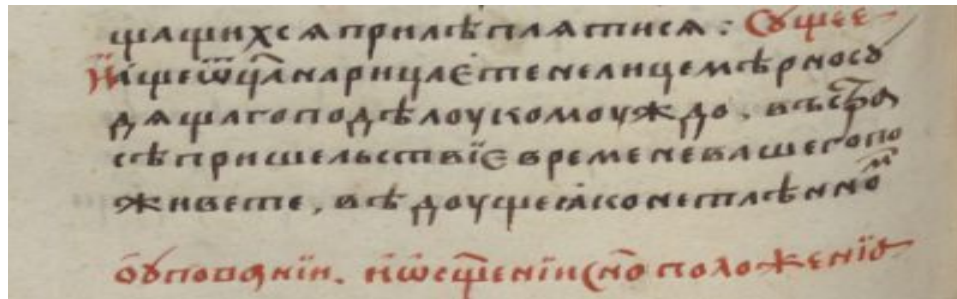 щащихсѧ прилѣплѧтисѧ : Сꙋщее
И҆ аще ѿц҃а нарицаєте нелицемѣрно сꙋ
дѧща го по дѣлоу комоуждо . въ стра
сѣ пришельствїѐ времене вашего по
живете , вѣдоуще ꙗко не тлѣнно
полоѫенїѐ